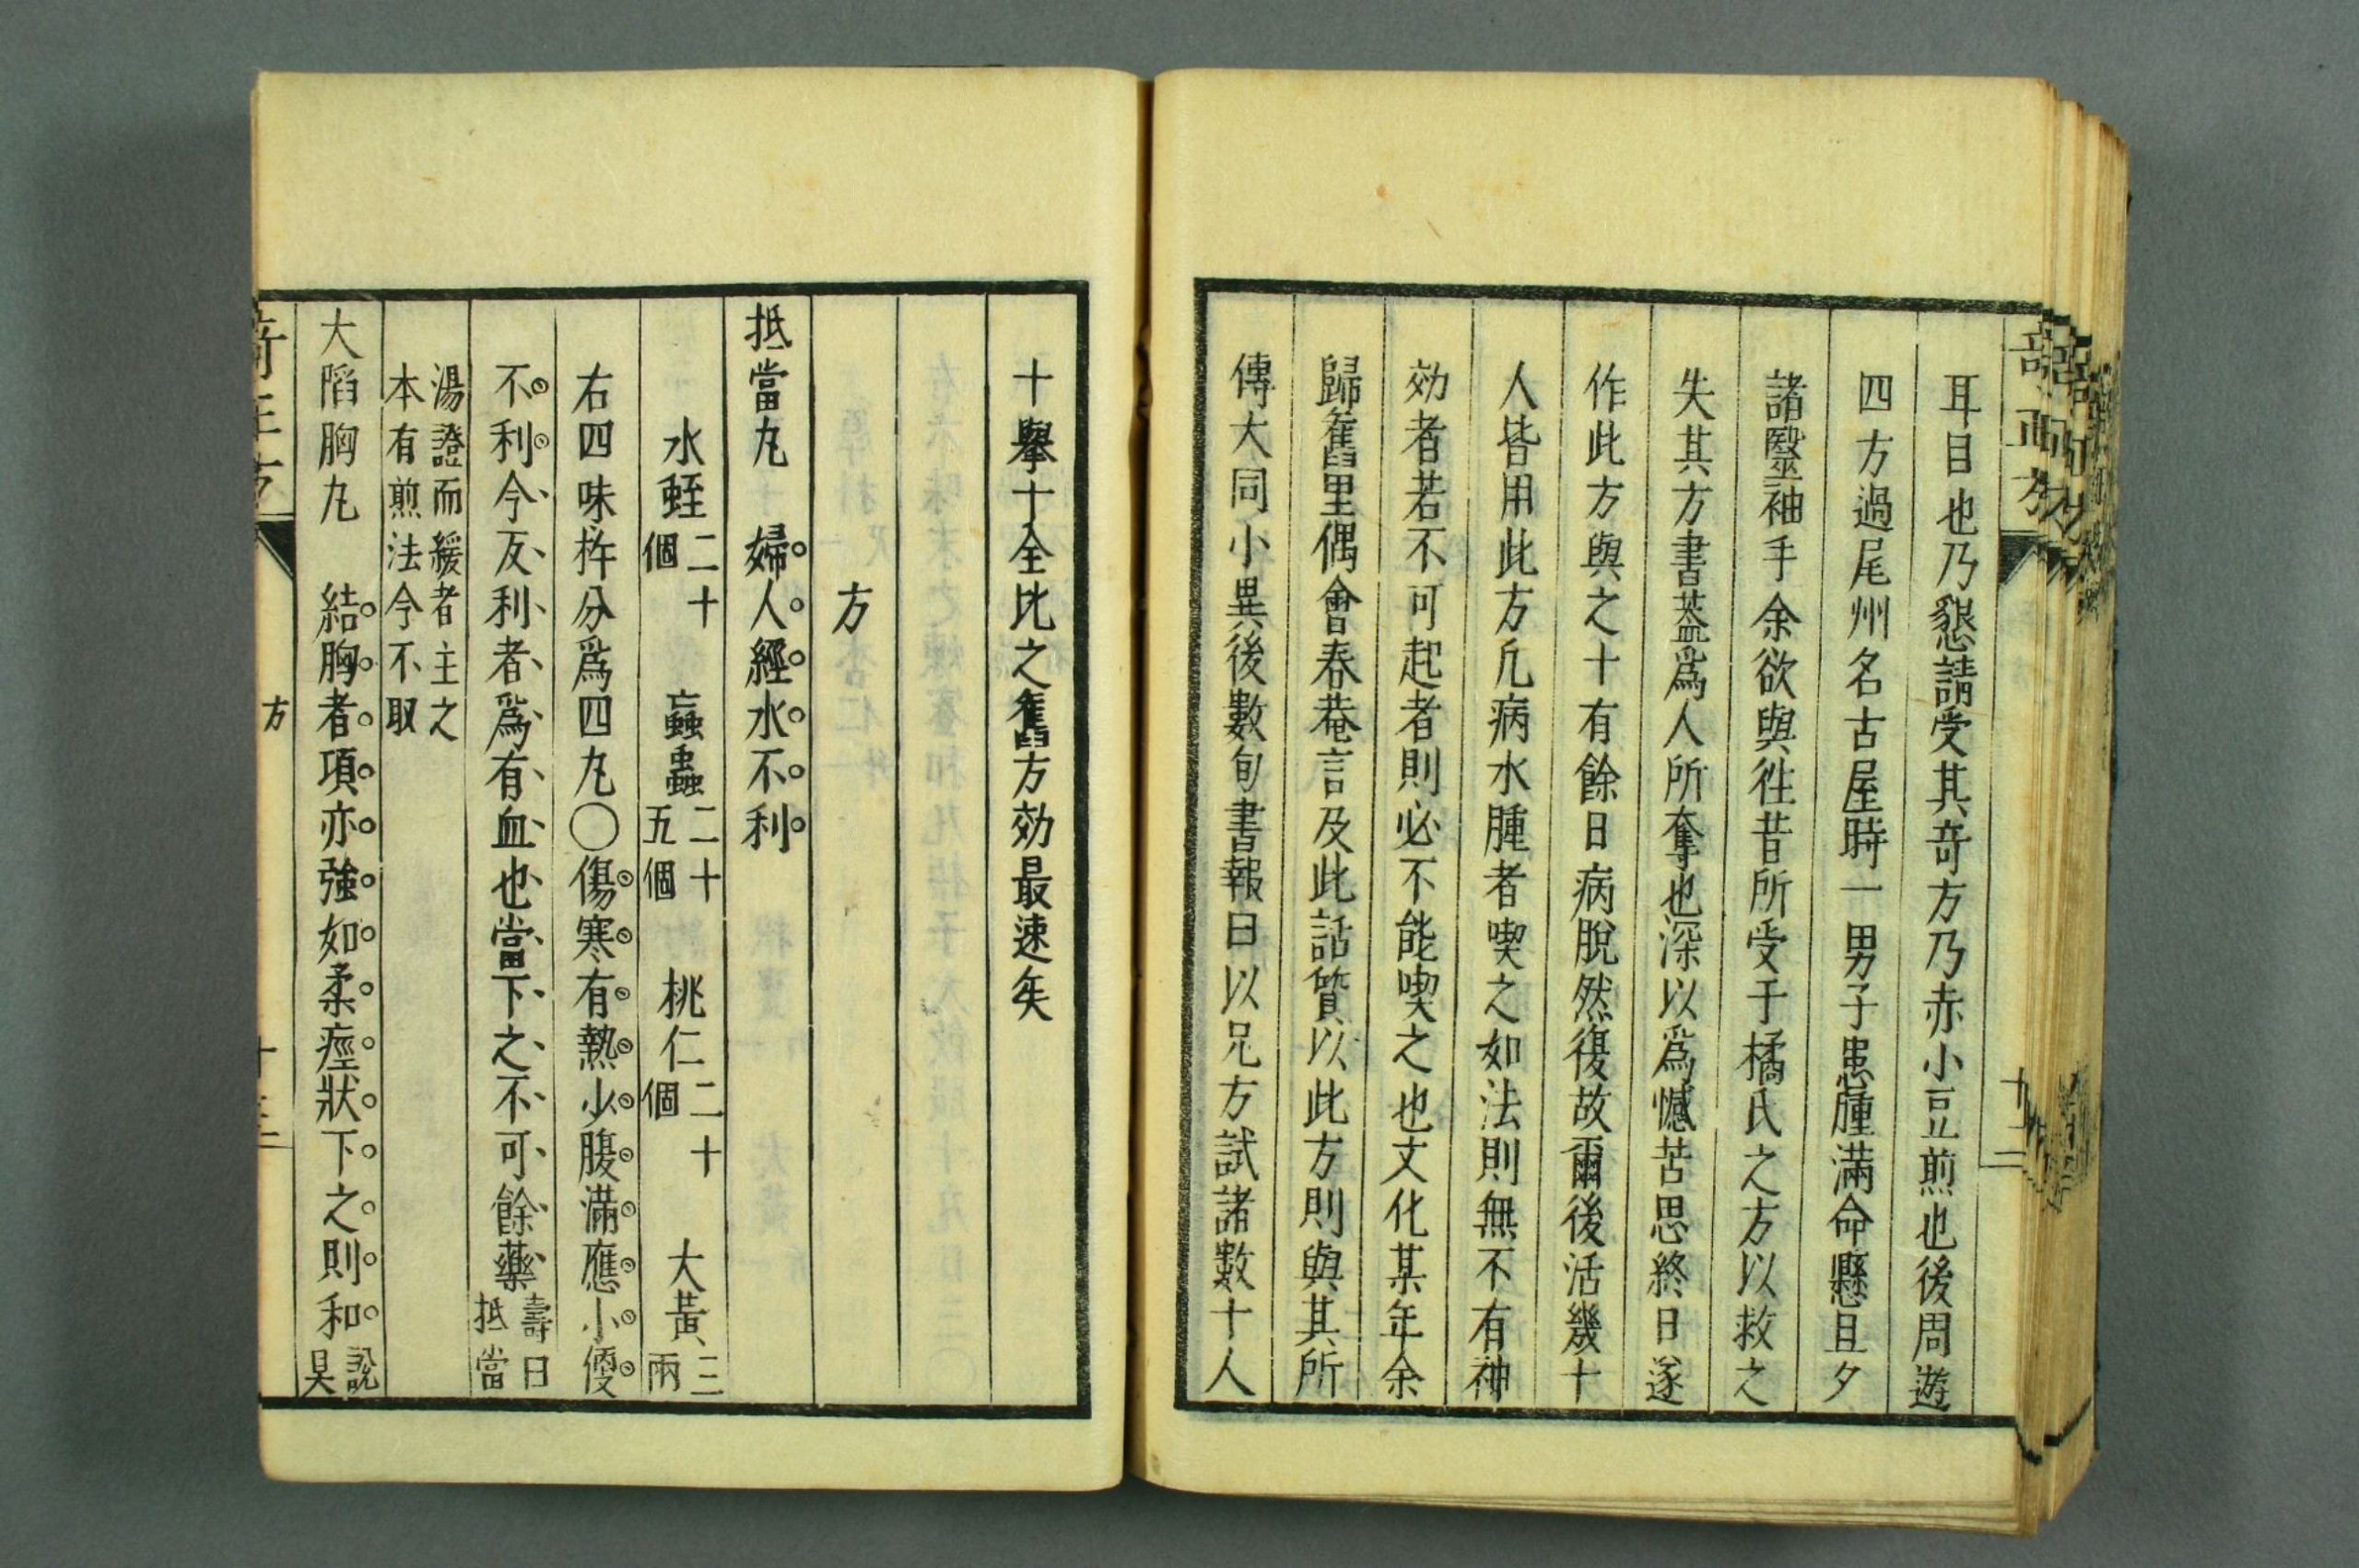 耳目也乃懇請受其奇方乃赤小豆煎也後周遊
四方過尾州名古屋時一男子患腫滿命懸且夕
諸毉袖手余欲與往昔所受于橘氏之方以救之
失其方書葢爲人所奪也深以爲憾苦思終日遂
作此方與之十有餘日病脫然復故爾後活幾十
人皆用此方凢病水腫者喫之如法則無不有神
効者若不可起者則必不能喫之也文化某年余
歸舊里偶會春菴言及此話質以此方則與其所
傳大同小異後數旬書報曰以兄方試諸數十人
十擧十全比之舊方効最速矣
方
抵當丸 婦人經水不利
水蛭二十個 蝱蟲二十五個 桃仁二十個 大黃三兩
右四味杵分爲四丸○傷寒有熱少腹滿應小便
不利今反利者爲有血也當下之不可餘藥壽曰抵當
湯證而緩者主之
本有煎法今不取
大陷胸丸 結胸者項亦強如柔痙狀下之則和說具
方